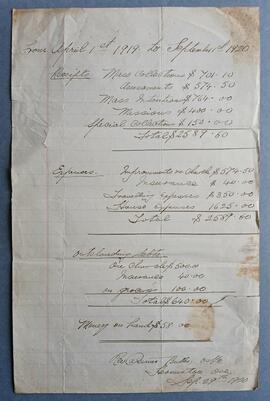 From April 1st 1919 to September 1st 1920
Receipts Mass Collections $ 701.10
Assessments $ 574.50
Mass Intentions $ 764.00
Missions $ 400.00
Special Collections $ 150.00
Total $ 2589.60
Expenses Improvements on Church $ 574.50
Insurance $ 40.00
Travelling Expenses $ 350.00
House Expenses 1625.00
Total $ 2589.60
Outstanding debts
On Church $ 500.00
Insurance 40.00
on grocery 100.00
Total $ 640.00
Money on hand $ 58.00
Ont
Sep. 1920